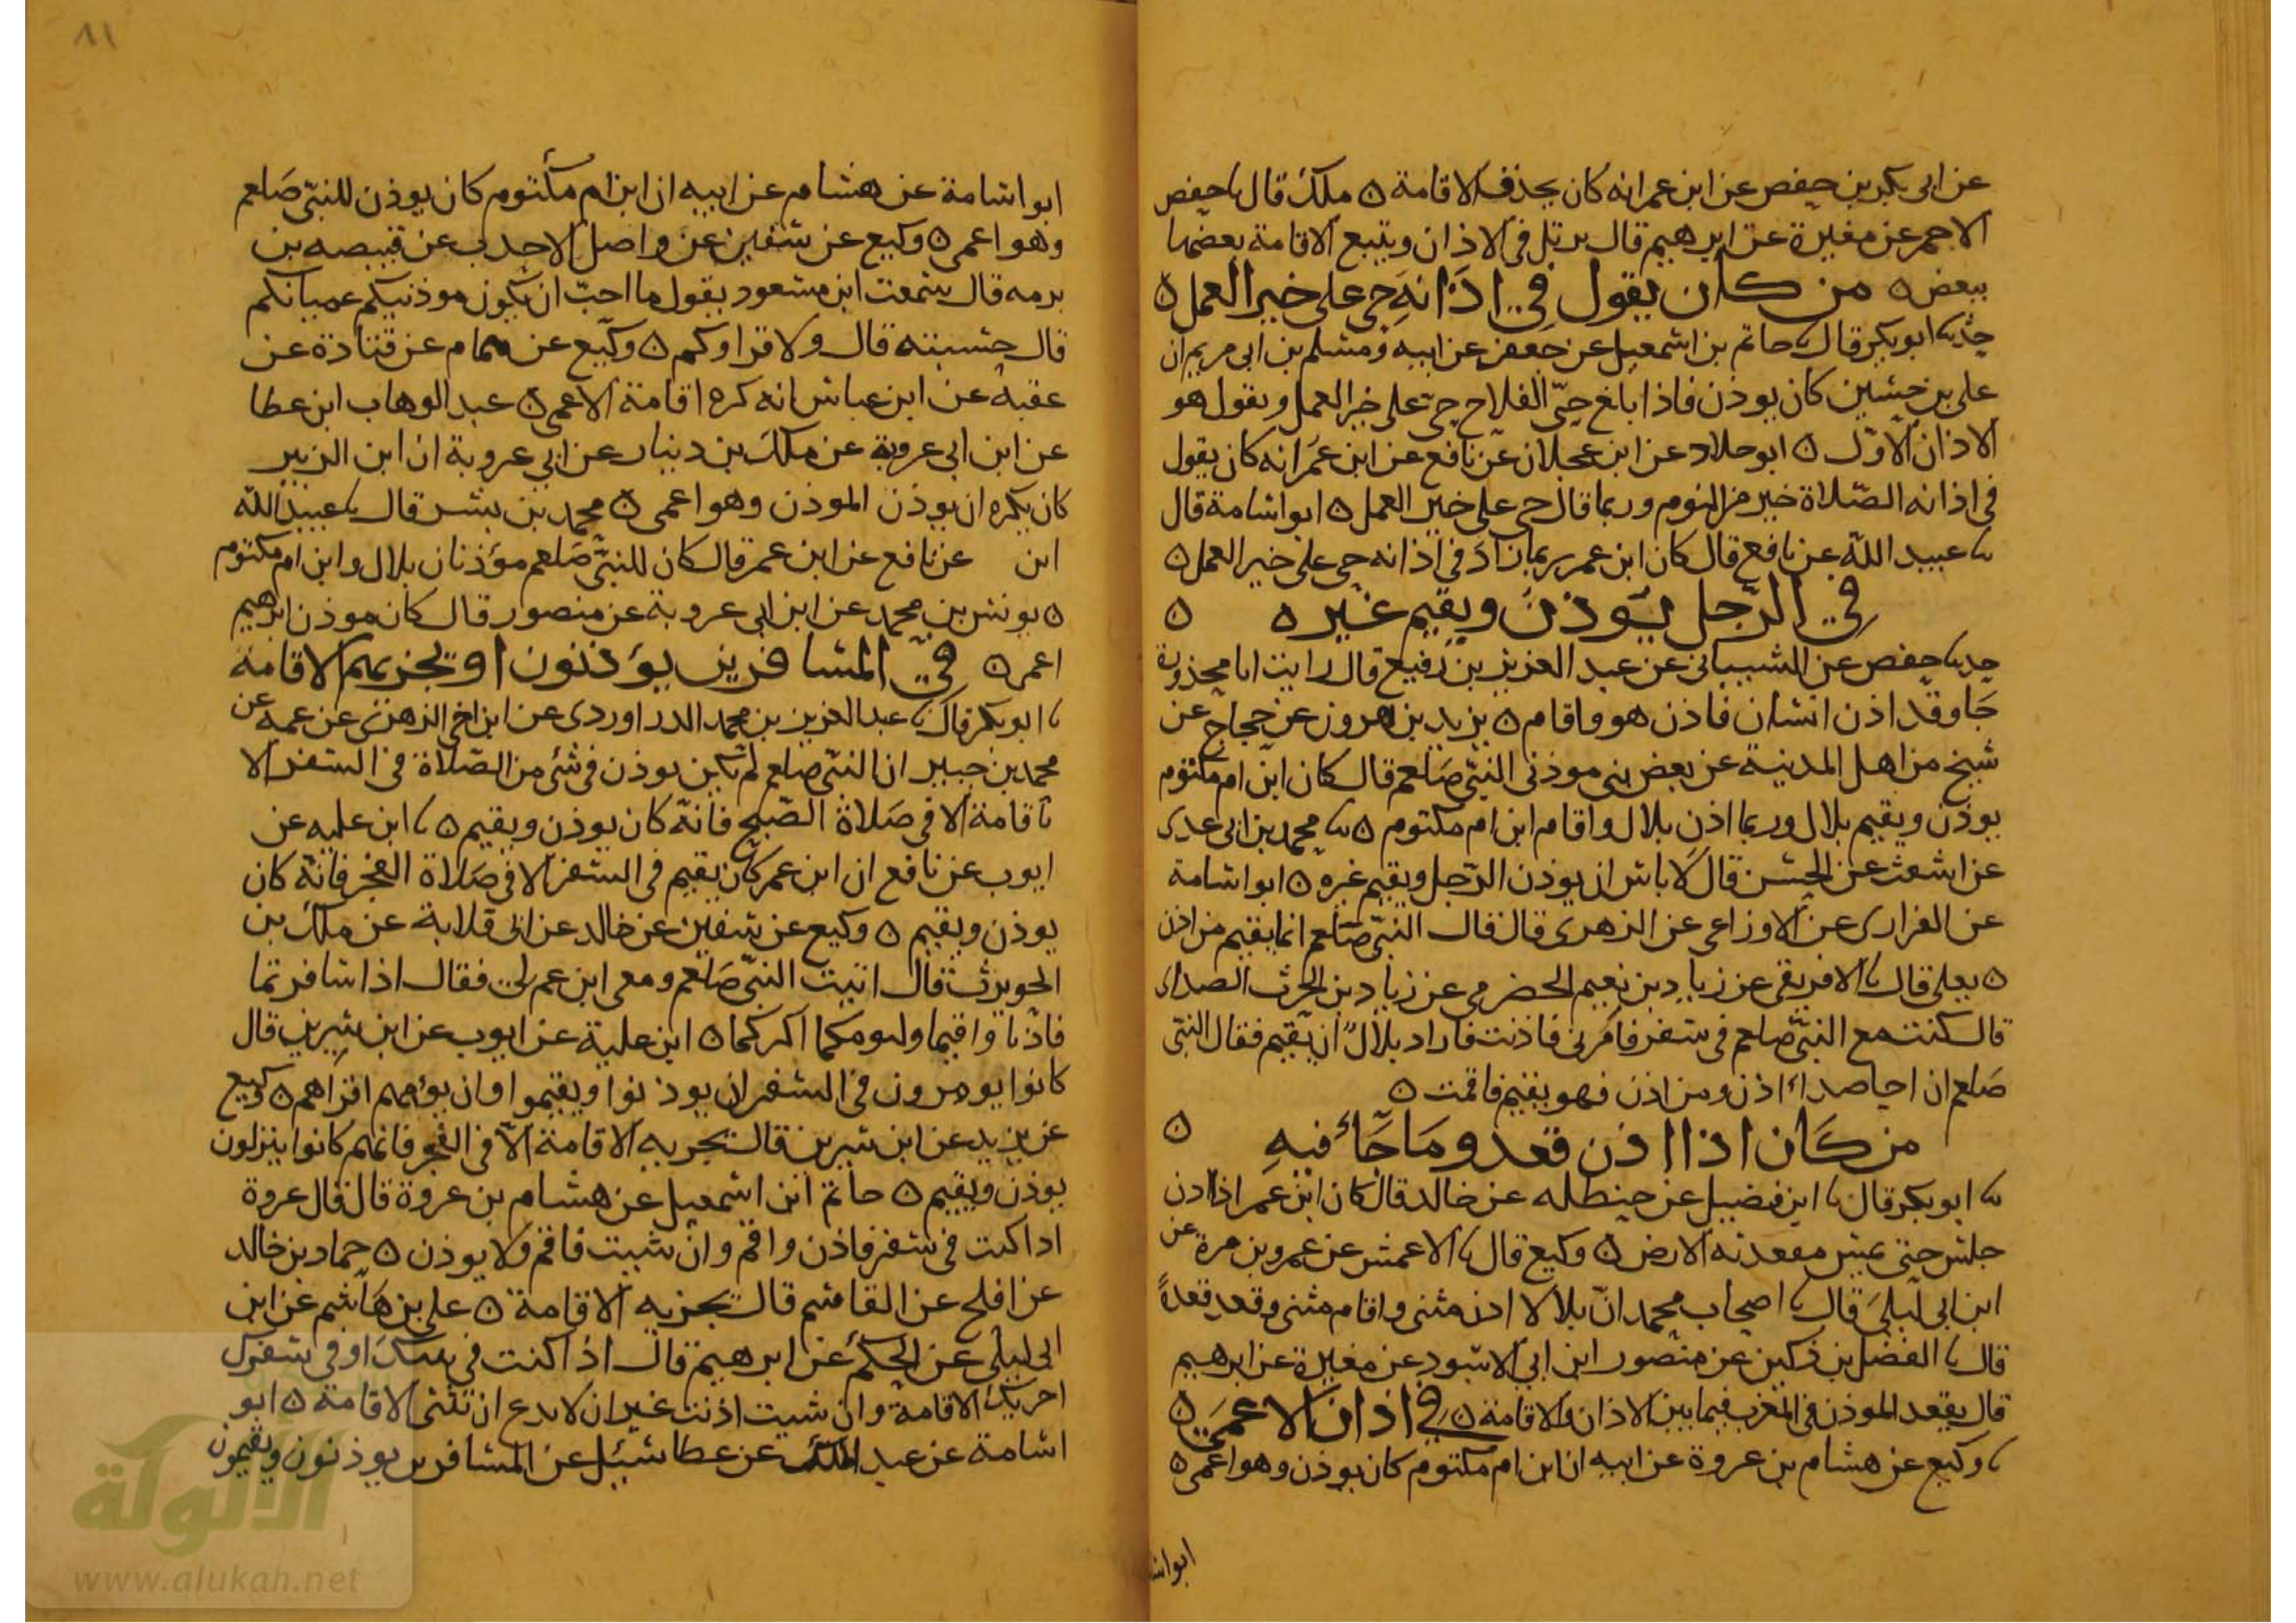 عن ابى بكر بن حفص عن ابن عمر انه كان يحذف الاقامة ه ملك قال ىا حفص
الاحمر عن مغيرة عن ابرهيم قال يرتل فى الاذان ويتبع الاقامة بعضها
ببعض ه من كان يقول فى اذانه حى على خير العمل ه
حدىا ابو بكر قال ىا حاتم بن اسمعيل عن جعفر عن ابيه ومسلم بن ابى مريم ان
على بن حسين كان يوذن فاذا بلغ حىّ الفلاح حى على خير العمل ويقول هو
الاذان الاول ه ابو خلاد عن ابن عجلان عن نافع عن ابن عمر انه كان يقول
فى اذانه الصّلاة خير من النوم وربما قال حى على خير العمل ه ابو اسامة قال
ىا عبيد الله عن نافع قال كان ابن عمر ربما زاد فى اذانه حى على خير العمل ه
فى الرّجل يؤذن ويقيم غيره ه
حدىا حفص عن الشيبانى عن عبد العزيز بن رفيع قال رايت ابا محذورة
جا وقد اذن انسان فاذن هو واقام ه يزيد بن هرون عن حجاج عن
شيخ من اهل المدينة عن بعض بنى موذنى النبىّ صَلعم قال كان ابن ام مكتوم
يوذن ويقيم بلال وربما اذن بلال واقام ابن ام مكتوم ه ىا محمد بن ابى عدى
عن اشعث عن الحسن قال لا باس ان يوذن الرّجل ويقيم غيره ه ابو اسامة
عن الفزارى عن الاوزاعى عن الزهرى قال قال النبىّ صَلعم انما يقيم من اذن
ه يعلى قال ىا الافريقى عن زياد بن نعيم الحضرمى عن زياد بن الحرث الصداى
قال كنت مع النبىّ صلعم فى سفر فامرنى فاذنت فاراد بلالٌ ان يقيم فقال النبى
صَلعم ان اخا صداء اذن ومن اذن فهو يقيم فاقمت ه
من كان اذا اذن قعد وما جاء فيه ه
ىا ابو بكر قال ىا ابن فضيل عن حنطله عن خالد قال كان ابن عمر اذا اذن
جلس حتى يمس مقعدته الارض ه وكيع قال ىا الاعمش عن عمرو بن مرة عن
ابن ابى ليلى قال ىا اصحاب محمد انّ بلالا اذن مثنى واقام مثنى وقعد قعدةً
قال ىا الفضل بن دكين عن منصور ابن ابى الاسود عن مغيرة عن ابرهيم
قال يقعد الموذن فى المغرب فيما بين الاذان والاقامة ه فى اذان الاعمى ه
ىا وكيع عن هشام بن عروة عن ابيه ان ابن ام مكتوم كان يوذن وهو اعمى ه
ابو اسا
٨١
ابو اسامة عن هشام عن ابيه ان ابن ام مكتوم كان يوذن للنبىّ صَلعم
وهو اعمى ه وكيع عن سفين عن واصل الاحدب عن قبيصه بن
برمه قال سمعت ابن مسعود يقول ما احبّ ان يكون موذنيكم عميانكم
قال حسبته قال ولا قراوكم ه وكيع عن همام عن قتادة عن
عقبة عن ابن عباس انه كره اقامة الاعمى ه عبد الوهاب ابن عطا
عن ابن ابى عروبة عن ملك بن دينار عن ابى عروبة ان ابن الزبير
كان يكره ان يوذن الموذن وهو اعمى ه محمد بن بشر قال ىا عبيد الله
ابن عن نافع عن ابن عمر قال كان للنبىّ صَلعم مؤذنان بلال وابن ام مكتوم
ه يونس بن محمد عن ابن ابى عروبة عن منصور قال كان موذن ابرهيم
اعمى ه فى المسافرين يؤذنون او تجزيهم الاقامة
ىا ابو بكر قال ىا عبد العزيز بن محمد الدراوردى عن ابن اخى الزهرى عن عمه عن
محمد بن جبير ان النبىّ صلعم لم يكن يوذن فى شئ من الصّلاة فى السفر الا
باقامة الا فى صَلاة الصّبح فانّه كان يوذن ويقيم ه ىا ابن عليه عن
ايوب عن نافع ان ابن عمر كان يقيم فى السفر الا فى صَلاة الفجر فانّه كان
يوذن ويقيم ه وكيع عن سفين عن خالد عن ابى قلابة عن ملك بن
الحويرث قال اتيت النبىّ صَلعم ومعى ابن عم لى فقال اذا سافرتما
فاذنا واقيما وليومكما اكبركما ه ابن علية عن ايوب عن ابن سيرين قال
كانوا يومرون فى السفر ان يوذنوا ويقيموا وان يؤمهم اقراهم ه وكيع
عن يزيد عن ابن سيرين قال تجزيه الاقامة الاّ فى الفجر فانهم كانوا ينزلون
يوذن ويقيم ه حاتم ابن اسمعيل عن هشام بن عروة قال قال عروة
اذا كنت فى سفر فاذن واقم وان شيت فاقم ولا يوذن ه حماد بن خالد
عن افلح عن القاسم قال تجزيه الاقامة ه على بن هاشم عن ابن
ابى ليلى عن الحكم عن ابرهيم قال اذا كنت فى بيتك او فى سفرك
اجزيك الاقامة وان شيت اذنت غير ان لا تدع ان تثنى الاقامة ه ابو
اسامة عن عبد الملك عن عطا سئل عن المسافرين يوذنون ويقيمون
الألوكة
www.alukah.net